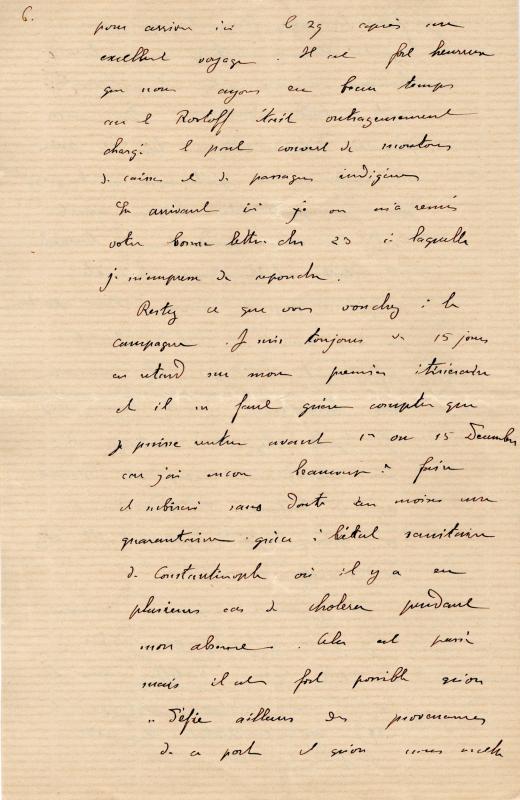 6.
pour arriver ici le 29 après un
excellent voyage. Il est fort heureux
que nous ayons eu beau temps
car le était outrageusement
chargé le pont couvert de moutons
de caisses et de passagers indigènes
En arrivant ici on m'a remis
votre bonne lettre du 23 à laquelle
je m'empresse de repondre.
Restez ce que vous voudrez à la
campagne. Je suis toujours de 15 jours
en retard sur mon premier itinéraire
et il ne faut guère compter que
je puisse rentrer avant le ou 15 Decembre
car j'ai encore beaucoup à faire
et subirai sans doute au moins une
quarantaine grâce à l'état sanitaire
de Constantinople où il y a eu
plusieurs cas de cholera pendant
mon absence. Cela est passé
mais il est fort possible qu'on
se défie ailleurs des provenances
de ce port et qu'on nous mette